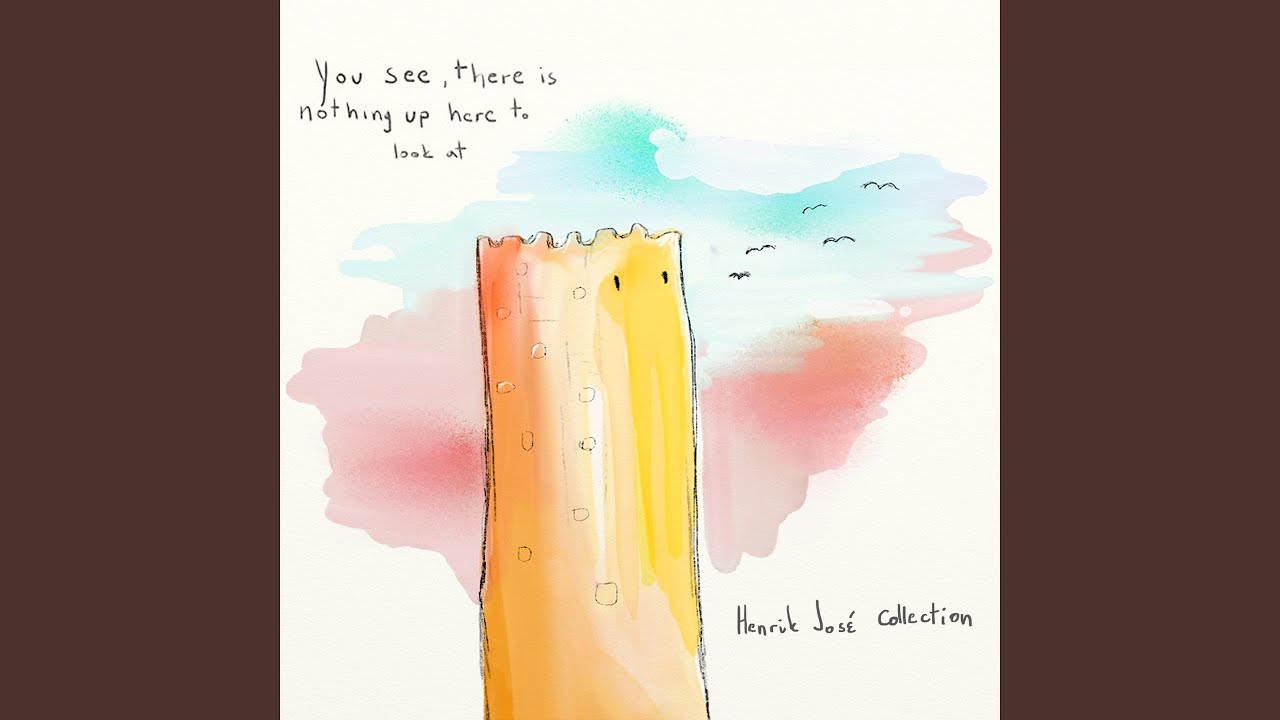 You see, there is
nothing up here to
look at
Henrik José Collection